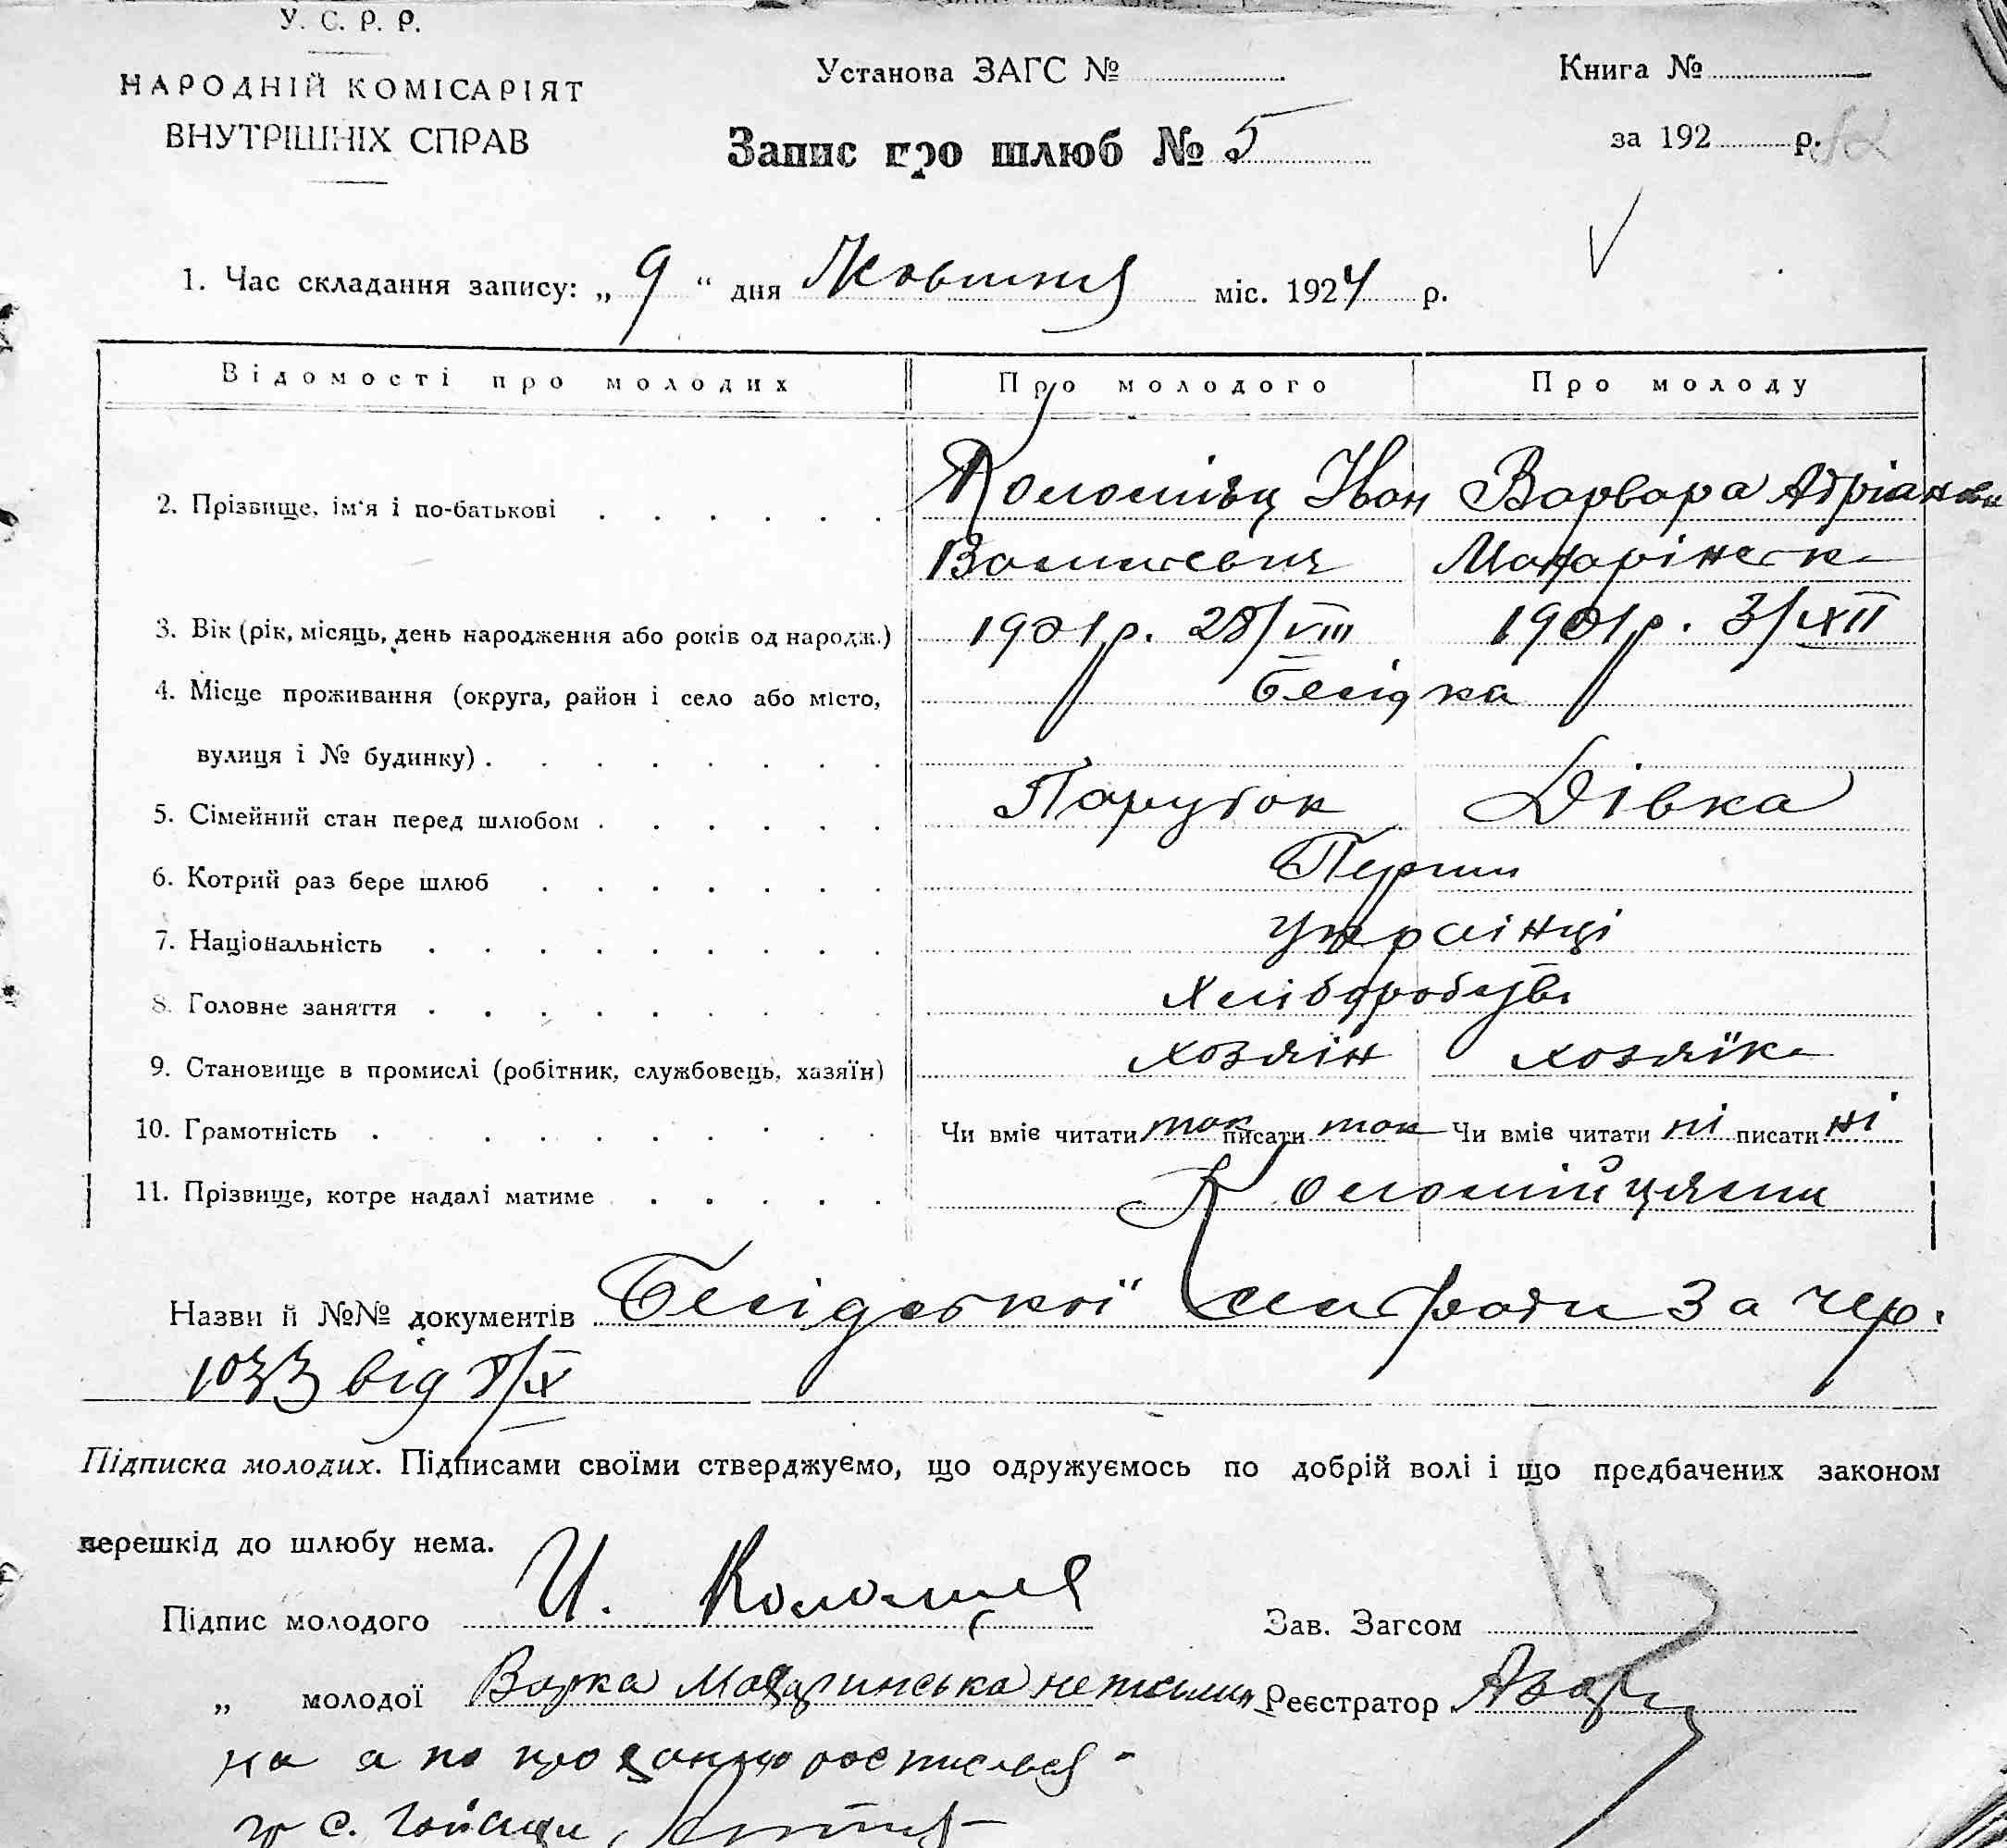 У. С. Р. Р.
НАРОДНІЙ КОМІСАРІЯТ
ВНУТРІШНІХ СПРАВ
Установа ЗАГС №
Книга №
Запис про шлюб № 5
за 192 р.
1. Час складання запису: „ 9 “ дня Жовтня міс. 1924 р.
Відомості про молодих Про молодого Про молоду
2. Прізвище, ім'я і по-батькові Коломієць Іван Варвара Адріановн
Васильевич Макарінськ
3. Вік (рік, місяць, день народження або років од народж.) 1901 р. 28/VIII 1901 р. 3/XII
4. Місце проживання (округа, район і село або місто, Бесідка
вулиця і № будинку)
5. Сімейний стан перед шлюбом Парубок Дівка
6. Котрий раз бере шлюб Перши
7. Національність Українці
8. Головне заняття Хлібороби
9. Становище в промислі (робітник, службовець, хазяїн) хозяін хозяїка
10. Грамотність Чи вміє читати так писати так Чи вміє читати ні писати ні
11. Прізвище, котре надалі матиме Коломійцями
Назви й №№ документів Бесідської Сільради за чер.
1033 від 8/X
Підписка молодих. Підписами своїми стверджуємо, що одружуємось по добрій волі і що предбачених законом
перешкід до шлюбу нема.
Підпис молодого И. Коломиєц
Зав. Загсом
„ молодої Варка Макаринська неписьмен
Реєстратор
на а по проханню росписався
гр с.